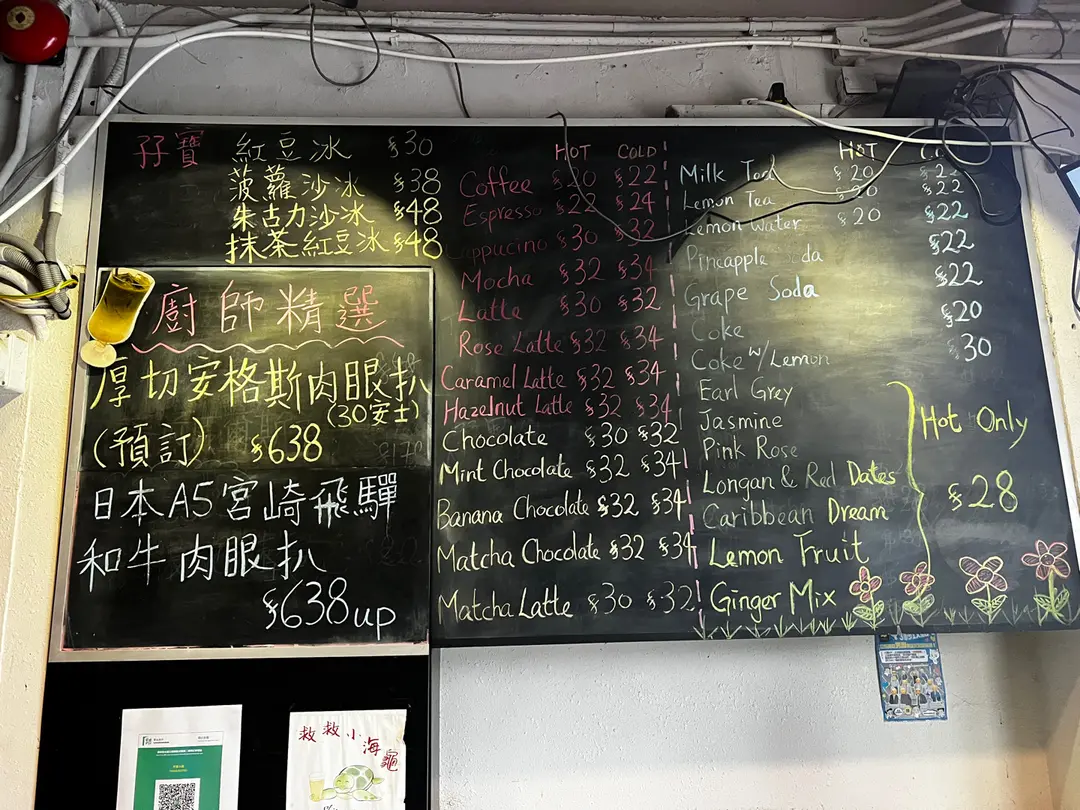 孖寶 紅豆冰 $30
菠蘿沙冰 $38
朱古力沙冰 $48
抹茶紅豆冰 $48
廚師精選
厚切安格斯肉眼扒
(30安士)
(預訂) $638
日本A5宮崎飛驒
和牛肉眼扒
$638up
HOT COLD
Coffee $20 $22
Espresso $22 $24
Cappucino $30 $32
Mocha $32 $34
Latte $30 $32
Rose Latte $32 $34
Caramel Latte $32 $34
Hazelnut Latte $32 $34
Chocolate $30 $32
Mint Chocolate $32 $34
Banana Chocolate $32 $34
Matcha Chocolate $32 $34
Matcha Latte $30 $32
HOT
Milk Tea $20 $22
Lemon Tea $20 $22
Lemon Water $20 $22
Pineapple Soda $22
Grape Soda $22
Coke $20
Coke w/Lemon $30
Earl Grey
Jasmine
Pink Rose
Longan & Red Dates
Caribbean Dream
Lemon Fruit
Ginger Mix
Hot Only
$28
救救小海龜